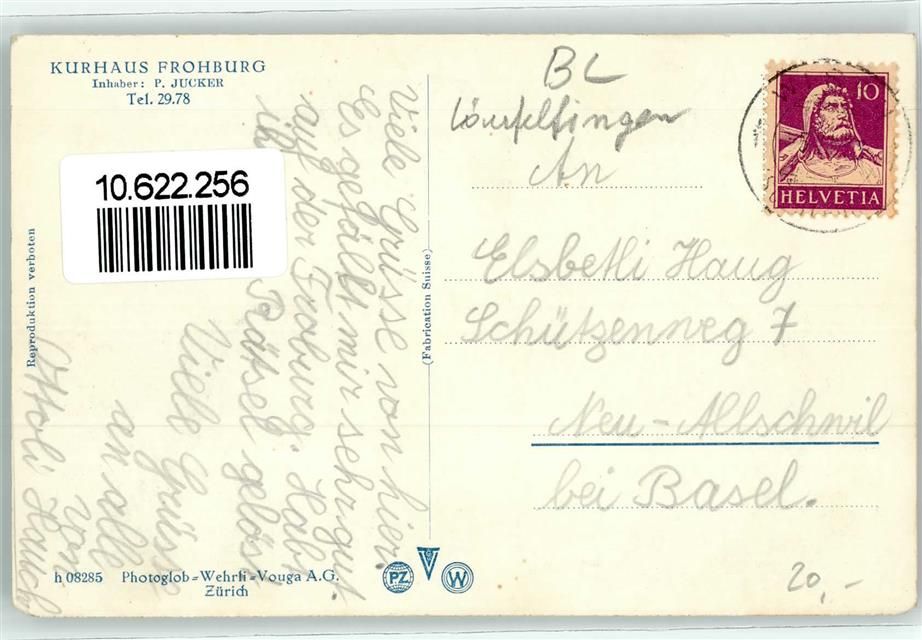 KURHAUS FROHBURG
Inhaber: P. JUCKER
Tel. 29.78
10.622.256
Reproduktion verboten
Viele Grüsse von hier.
Es gefällt mir sehr gut
auf der Froburg. Hab
Rätsel gelös
Viele Grüsse
an alle
von
h 08285 Photoglob-Wehrli-Vouga A.G.
Zürich
(Fabrication Suisse)
PZ
W
BL
Läufelfingen
An
Elsbetli Haug
Schützenweg 7
Neu-Allschwil
bei Basel.
10
HELVETIA
20,-